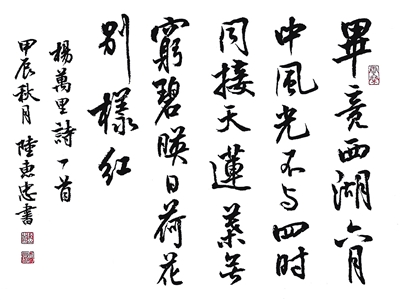 畢竟西湖六月
中風光不与四時
同接天蓮葉無
窮碧暎日荷花
別樣紅
楊萬里詩一首
甲辰秋月 陸惠忠書